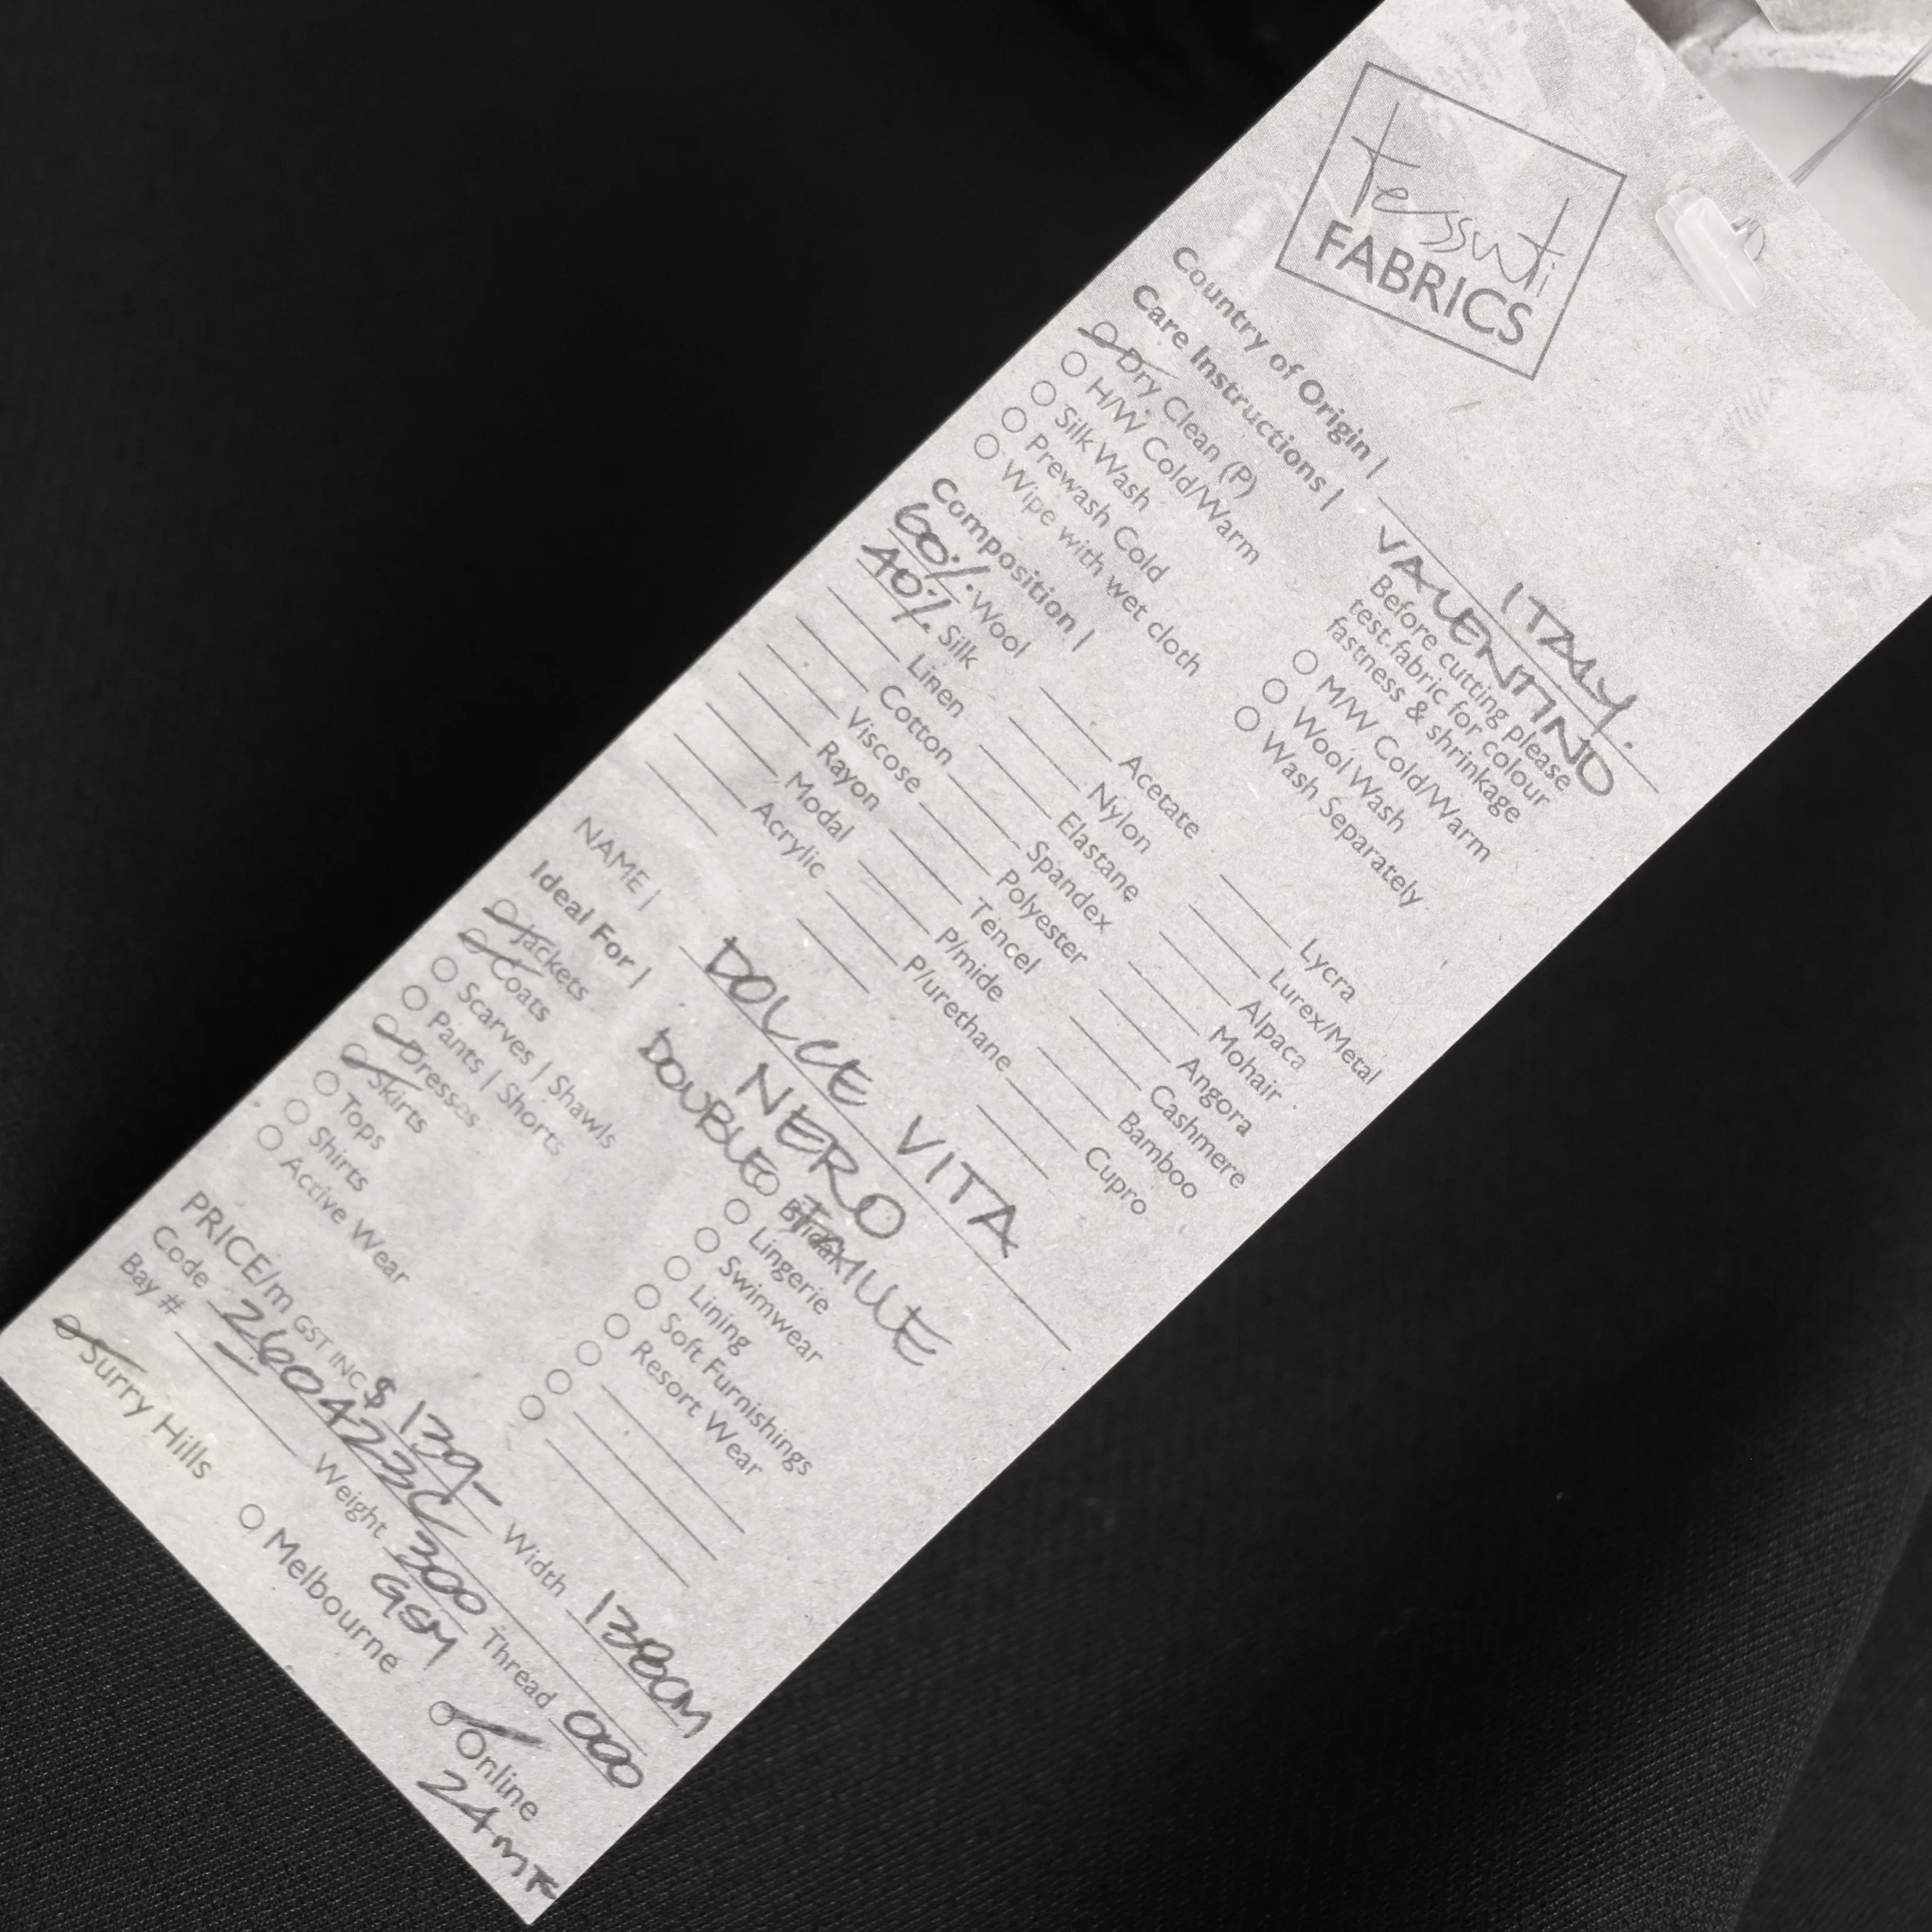 Tessuti
FABRICS
Country of Origin | ITALY.
VALENTINO
Care Instructions |
Before cutting please
test fabric for colour
fastness & shrinkage
Dry Clean (P)
H/W Cold/Warm
Silk Wash
Prewash Cold
Wipe with wet cloth
M/W Cold/Warm
Wool Wash
Wash Separately
Composition |
60% Wool
40% Silk
Linen
Cotton
Viscose
Rayon
Modal
Acrylic
Acetate
Nylon
Elastane
Spandex
Polyester
Tencel
P/mide
P/urethane
Lycra
Lurex/Metal
Alpaca
Mohair
Angora
Cashmere
Bamboo
Cupro
NAME | DOLCE VITA
NERO
DOUBLE FAILLE
Ideal For |
Jackets
Coats
Scarves | Shawls
Pants | Shorts
Dresses
Skirts
Tops
Shirts
Active Wear
Bridal
Lingerie
Swimwear
Lining
Soft Furnishings
Resort Wear
PRICE/m GST INC $139- Width 138CM
Code 260423C
Bay # Weight 300 GSM Thread 000
Surry Hills Melbourne Online